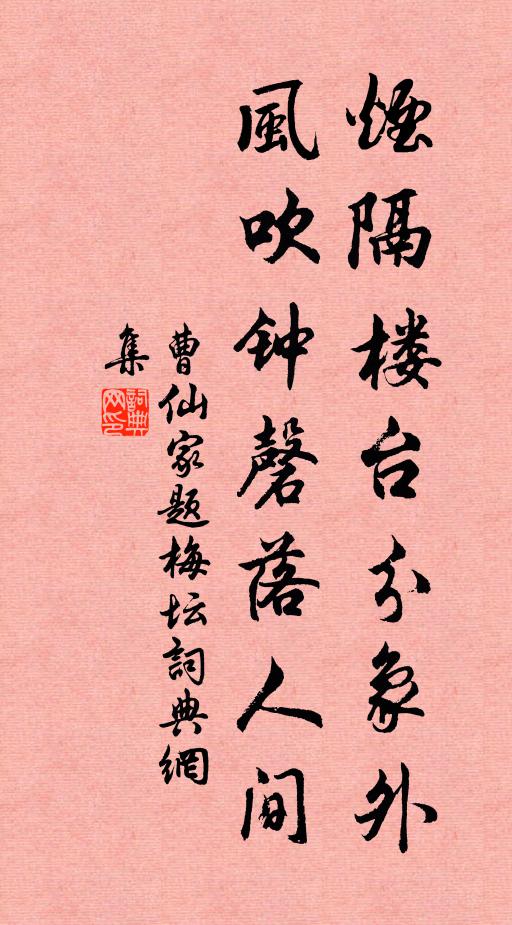 煙隔楼台分象外
風吹钟磬落人间
曹仙家题梅坛詞典網
集
詞典
网印